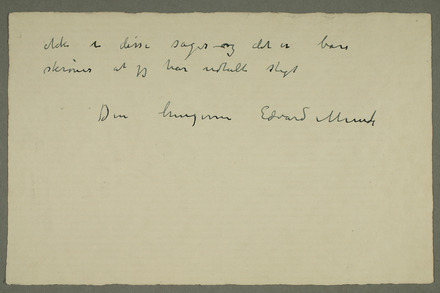 ikke i disse sager og det er bare
at jeg har
Din hengivne Edvard Munch